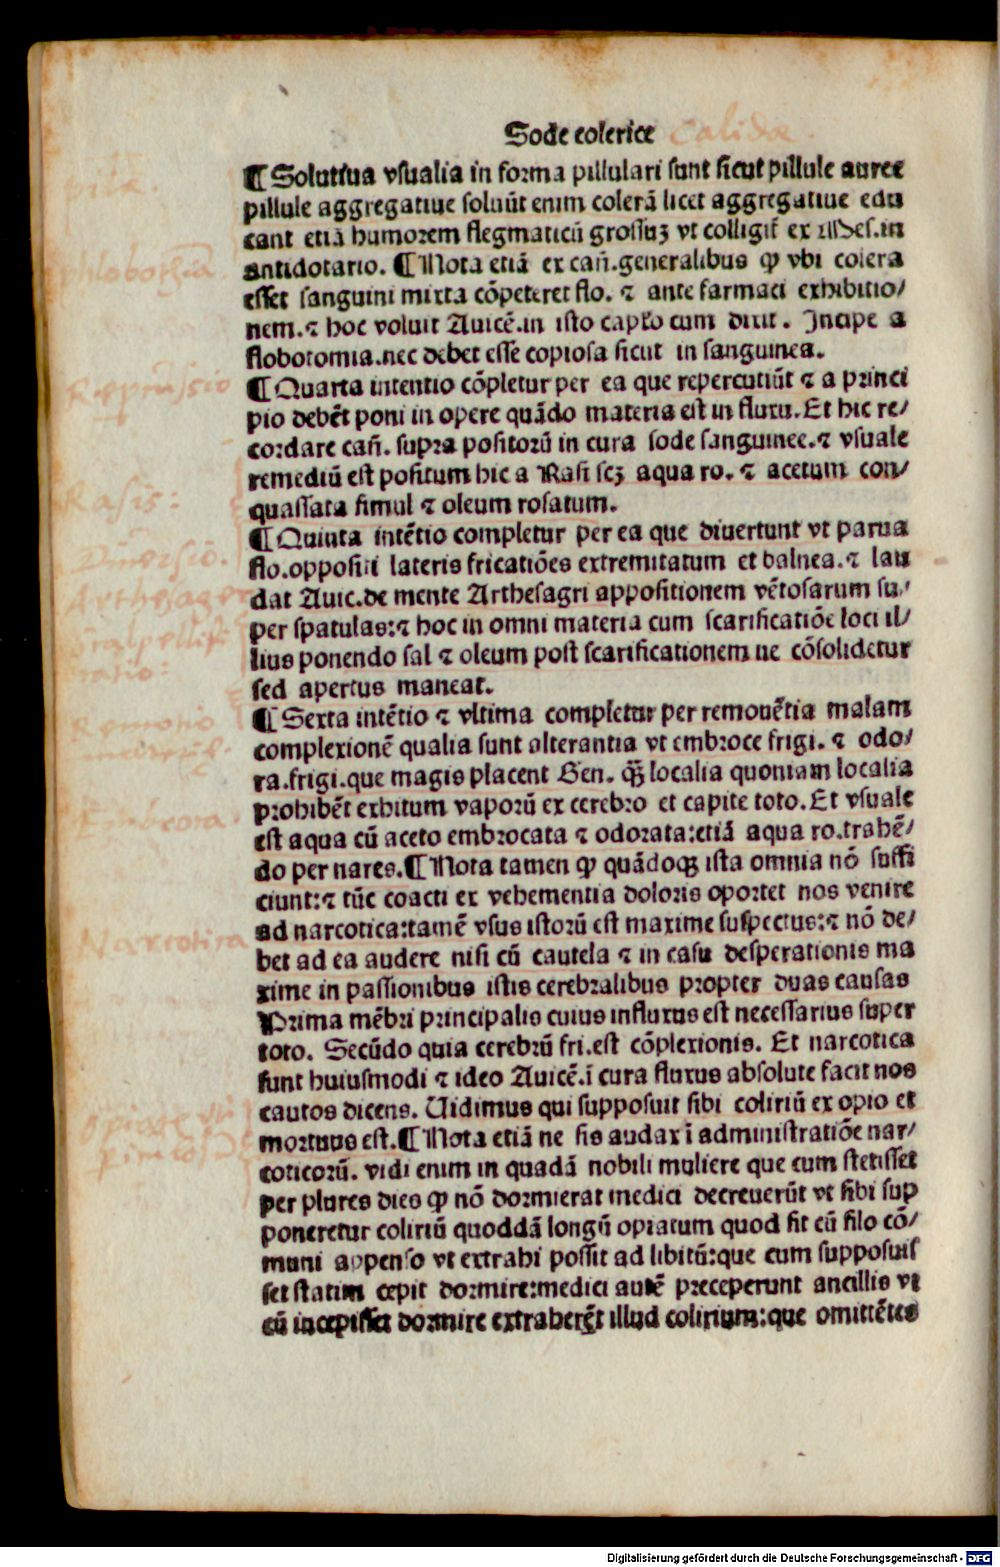 Sode colerice calidae.
¶ Solutiua vsualia in forma pillulari sunt sicut pillule auree
pillule aggregatiue soluũt enim colerã licet aggregatiue edu
cant etiã humorem flegmaticũ grossuꝫ vt colligit᷑ ex Mes.in
antidotario. ¶ Nota etiã ex cañ.generalibus ꝙ vbi colera
esset sanguini mixta cõpeteret flo. ⁊ ante farmaci exhibitio/
nem.⁊ hoc voluit Auicẽ.in isto capło cum dixit. Incipe a
flobotomia.nec debet esse copiosa sicut in sanguinea.
¶ Quarta intentio cõpletur per ea que repercutiũt ⁊ a princi
pio debẽt poni in opere quãdo materia est in fluxu.Et hic re/
cordare cañ. supra positorũ in cura sode sanguinee.⁊ vsuale
remediũ est positum hic a Rasi scꝫ aqua ro. ⁊ acetum con/
quassata simul ⁊ oleum rosatum.
¶ Quinta intẽtio completur per ea que diuertunt vt parua
flo.oppositi lateris fricatiões extremitatum et balnea.⁊ lau
dat Auic.de mente Arthesagri appositionem vẽtosarum su/
per spatulas:⁊ hoc in omni materia cum scarificatiõe loci il/
lius ponendo sal ⁊ oleum post scarificationem ne cõsolidetur
sed apertus maneat.
¶ Sexta intẽtio ⁊ vltima completur per remouẽtia malam
complexionẽ qualia sunt alterantia vt embroce frigi. ⁊ odo/
ra.frigi.que magis placent Gen. q̃ꝫ localia quoniam localia
prohibẽt exhitum vaporũ ex cerebro et capite toto.Et vsuale
est aqua cũ aceto embrocata ⁊ odorata:etiã aqua ro.trahẽ/
do per nares.¶ Nota tamen ꝙ quãdoqꝫ ista omnia nõ suffi
ciunt:⁊ tũc coacti ex vehementia doloris oportet nos venire
ad narcotica:tamẽ vsus istorũ est maxime suspectus:⁊ nõ de/
bet ad ea audere nisi cũ cautela ⁊ in casu desperationis ma
xime in passionibus istis cerebralibus propter duas causas
Prima mẽbri principalis cuius influxus est necessarius super
toto. Secũdo quia cerebrũ fri.est cõplexionis. Et narcotica
sunt huiusmodi ⁊ ideo Auicẽ.ĩ cura fluxus absolute facit nos
cautos dicens. Uidimus qui supposuit sibi coliriũ ex opio et
mortuus est.¶ Nota etiã ne sis audax ĩ administratiõe nar/
coticorũ. vidi enim in quadã nobili muliere que cum stetisset
per plures dies ꝙ nõ dormierat medici decreuerũt vt sibi sup
poneretur coliriũ quoddã longũ opiatum quod fit cũ filo cõ/
muni appenso vt extrahi possit ad libitũ:que cum supposuis
set statim cepit dormire:medici autẽ preceperunt ancillis vt
cũ incepisset dormire extraherẽt illud colirium:que omittẽtes
phlobothomia.
Repercussio
Rasis:
Diuersio.
Arthesager
Embroca.
Narcotica
Digitalisierung gefördert durch die Deutsche Forschungsgemeinschaft - DFG